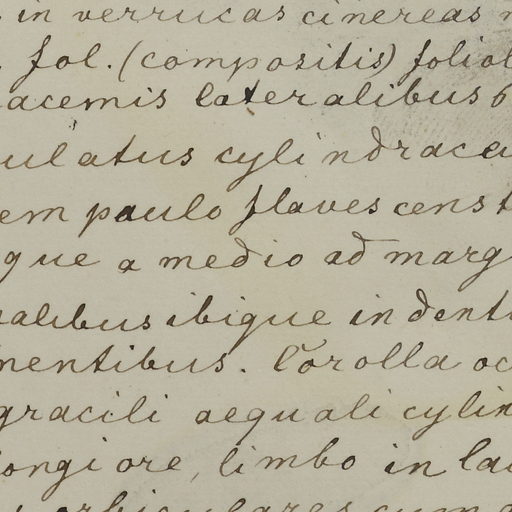 in verrucas cinereas
fol. (compositis) foliol
acemis lateralibus 6
ulatus cylindrace
em paulo flavescens t
que a medio ad marg
alibus ibique in denti
nentibus. Corolla oc
gracili aequali cylin
longiore, limbo in lac
orbiculares cum